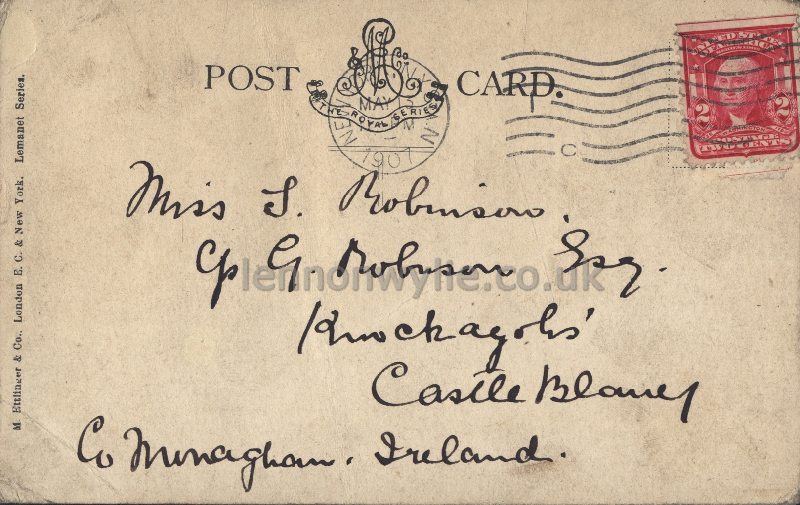 POST CARD.
& Co.
THE ROYAL SERIES
NEW
N.Y.
MAY
1907
C
UNITED STATES OF AMERICA
2 2
POSTAGE
TWO CENTS
M. Ettlinger & Co., London E. C. & New York. Lemanet Series.
Miss S. Robinson.
G. Robinson Esq.
lennonwylie.co.uk
Castle Blaney
Co Monaghan. Ireland.